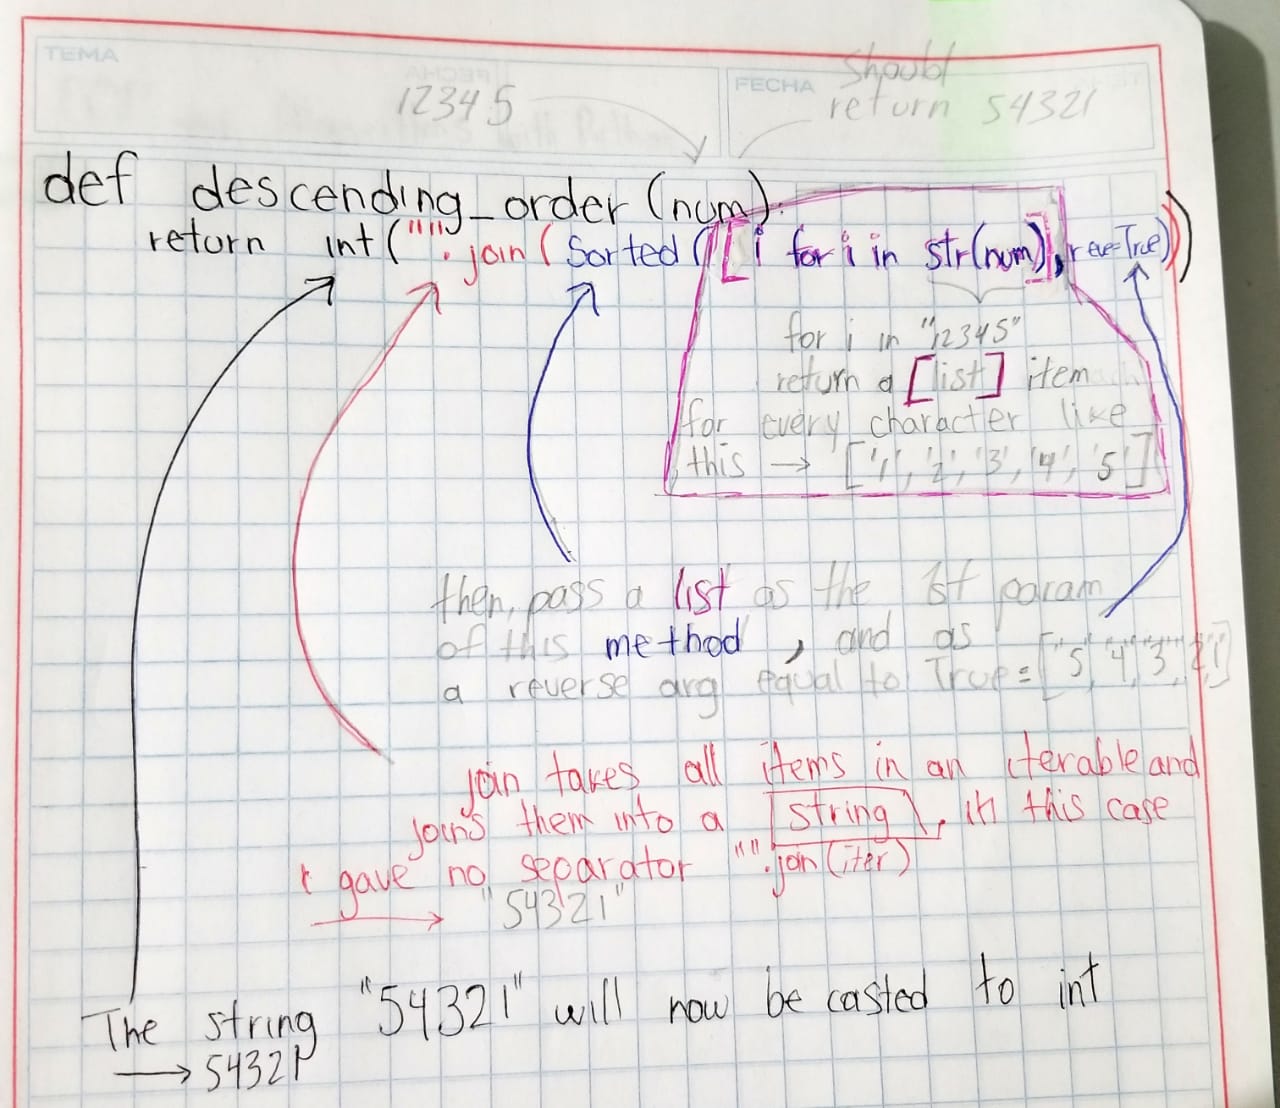 TEMA
FECHA
12345
should
return 54321
def descending_order (num):
return int("".join(sorted([i for i in str(num)], reve=True)))
for i in "12345"
return a [list] item
for every character like
this → ['1', '2', '3', '4', '5']
then, pass a list as the 1st param
of this method, and as
a reverse arg equal to True = ["5", "4", "3", "2", "1"]
join takes all items in an iterable and
joins them into a string, in this case
I gave no separator "".join(iter)
→ "54321"
The string "54321" will now be casted to int
→ 54321